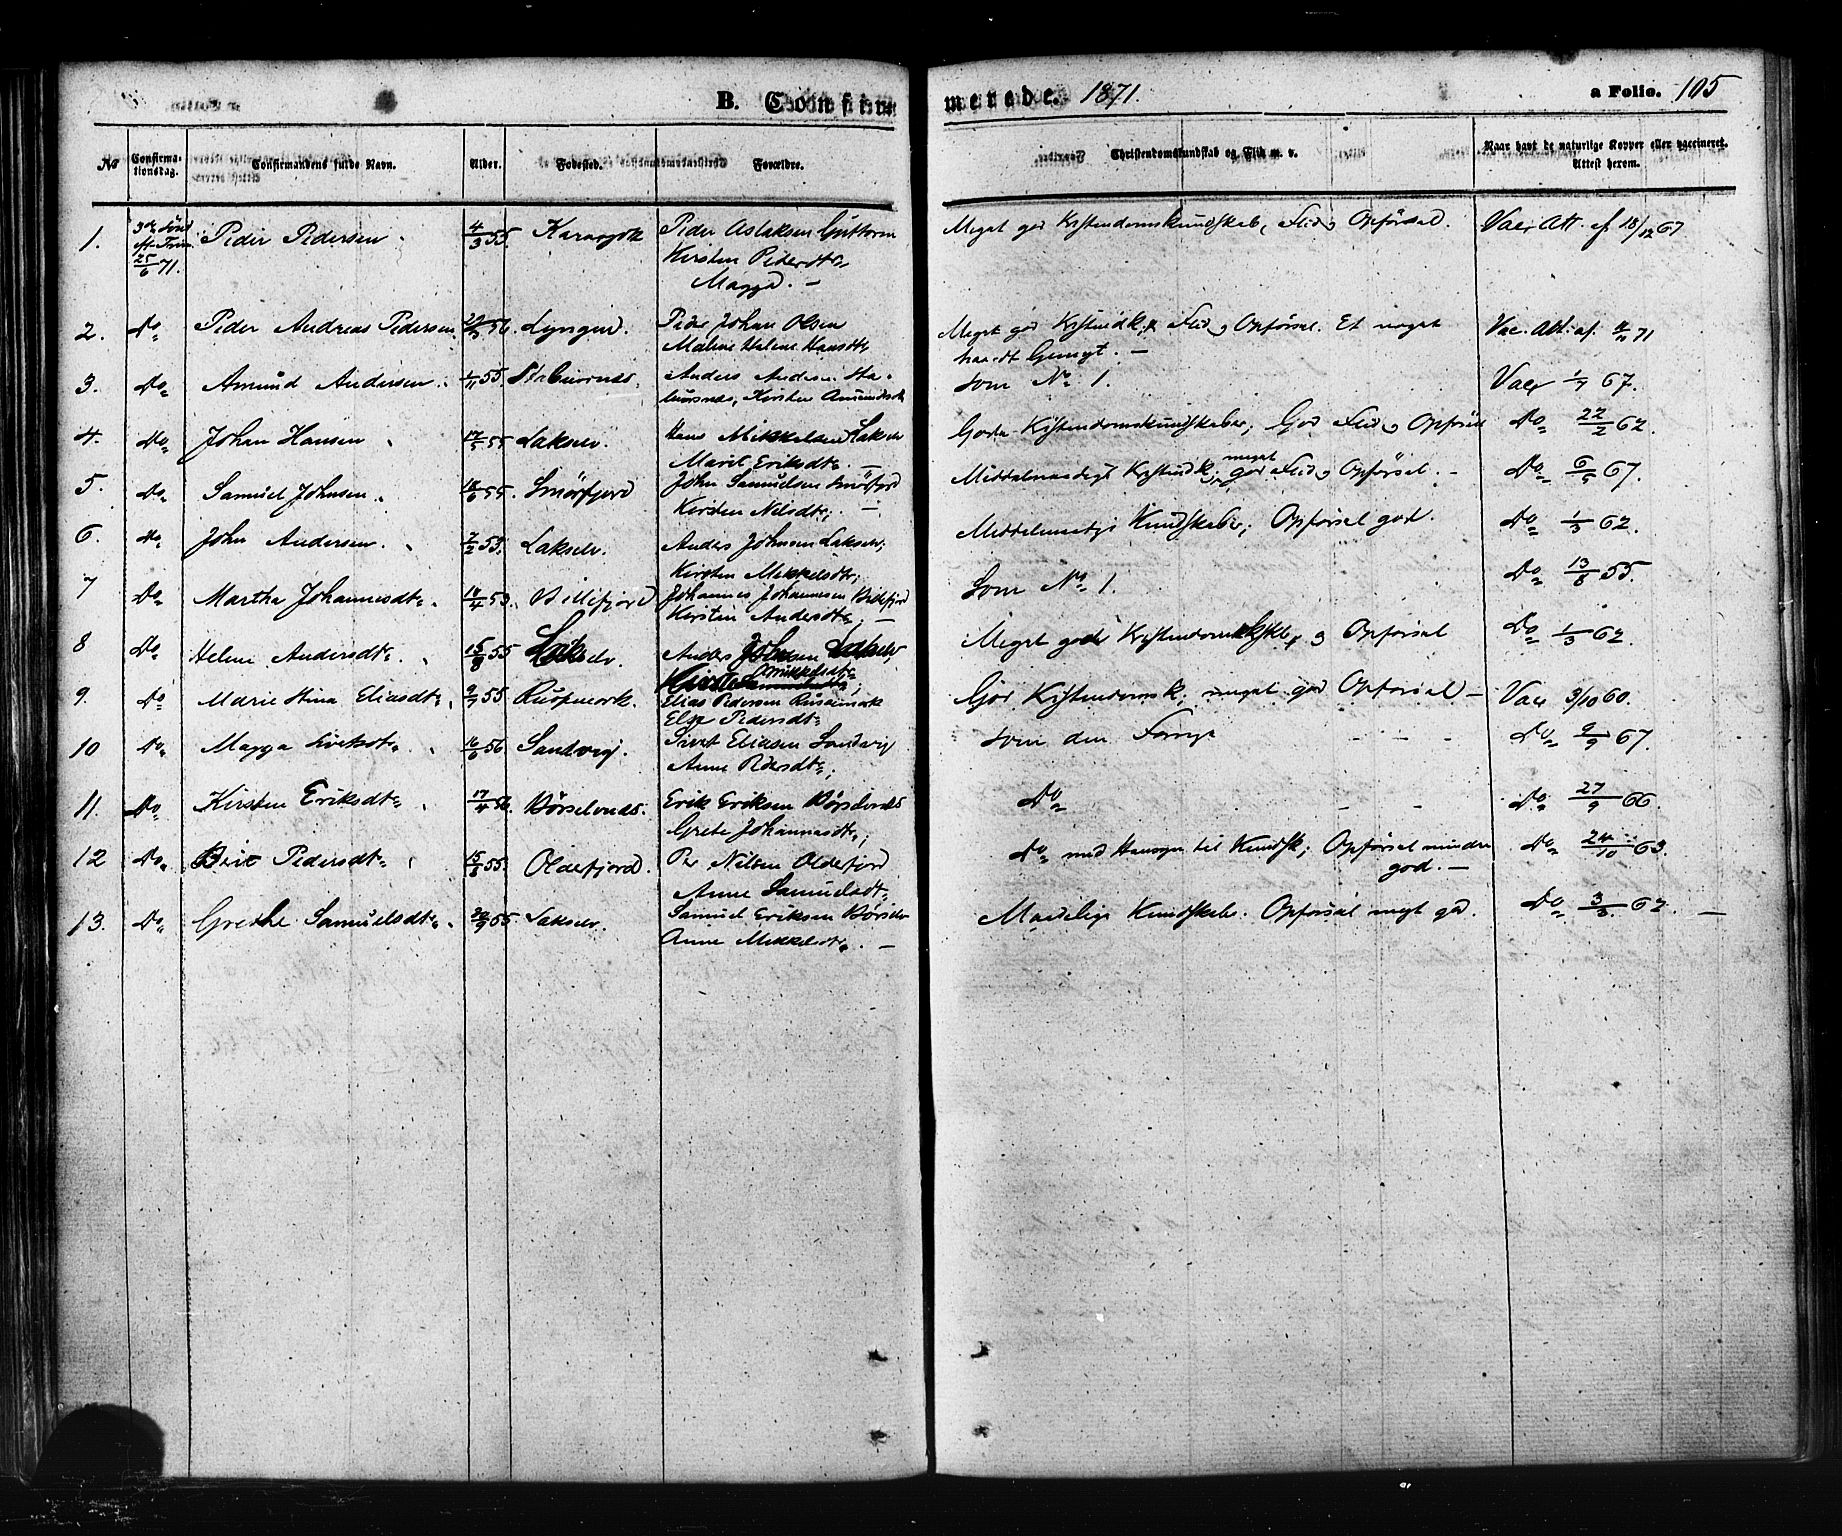 B. Confirmerede. 1871. a Folio. 105
No Confirmationsdag. Confirmandens fulde Navn. Alder. Fødested. Forældre. Christendomskundskab og Flid m. v. Naar havt de naturlige Kopper eller vaccineret. Attest herom.
1. 3die Sönd Peder Pedersen 4/3 55. Karasjok Peder Aslaksen Guttorm Meget god Kristendomskundskab, Flid og Opförsel. Vac. Att. af 18/12 67
25/6 71. Kirsten Pedersdtr
Magga. —
2. Do Peder Andreas Pedersen 56. Lyngen. Peder Johan Olsen Meget god Kristendk., Flid og Opförsel. Et noget Vac. Att. af 71
Malene Helene Hansdtr haardt Gemyt. —
3. Do Amund Andersen 1/11 55 Anders Andersen Sta- Som No 1. Vacc 1/7 67.
buursnæs, Kirsten Amundsdtr
4. Do Johan Hansen 17/5 55 Lakselv. Hans Mikkelsen Lakselv Gode Kristendomskundskaber; God Flid og Opförsel Do 22/2 62.
Marit Eriksdtr. —
5. Do Samuel Johnsen 18/6 55. Smörfjord John Samuelsen Smörfjord Middelmaadige Kristendk.; meget god Flid og Opförsel. Do 6/5 67.
Kirsten Nilsdtr; —
6. Do John Andersen. 7/2 55. Lakselv. Anders Johnsen Lakselv, Middelmaadige Kundskaber; Opförsel god. Do 1/3 62.
Kirsten Mikkelsdtr;
7 Do Martha Johannesdtr. 18/4 53. Billefjord Johannes Johannesen Billefjord Som No 1. Do 13/8 55.
Kirsten Andersdtr; —
8 Do Helene Andersdtr. 15/8 55 Lakselv. Anders Johnsen Lakselv Meget gode og Opförsel Do 1/3 62.
Kirsten Mikkelsdtr;
9. Do Marie Stina Eliasdtr. 9/7 55. Elias Pedersen God Kristendomsk; meget god Opförsel — Vac 3/10 60.
Else Pedersdtr
10 Do Magga Sivertsdtr. 16/6 56. Sandvig. Sivert Eliasen Sandvig Som den Forrige Do 9/9 67.
Anne Pedersdtr;
11. Do Kirsten Eriksdtr. 17/4 56. Börselvnæs. Erik Eriksen Börselvnæs Do Do 27/9 66.
Grete Johannesdtr;
12 Do Berit Pedersdtr. 15/8 55. Oldefjord. Per Nilsen Oldefjord Do med Hensyn til Kundsk; Opförsel mindre Do 24/10 63.
Anne Samuelsdtr god. —
13. Do Grethe Samuelsdtr. 20/9 55 Lakselv. Samuel Eriksen Börselv Maadelige Kundskaber. Opförsel meget god. Do 3/3 62. —
Anne Mikkelsdtr. —